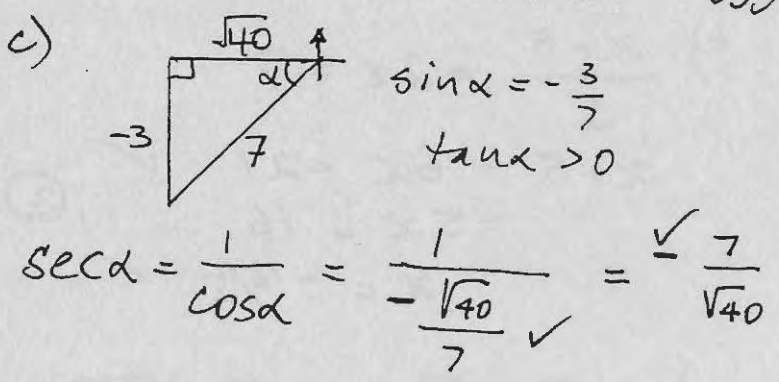 c)
√40
α
-3
7
sinα = - 3/7
tanα > 0
secα = 1/cosα = 1/(-√40/7) ✓ = ✓ - 7/√40